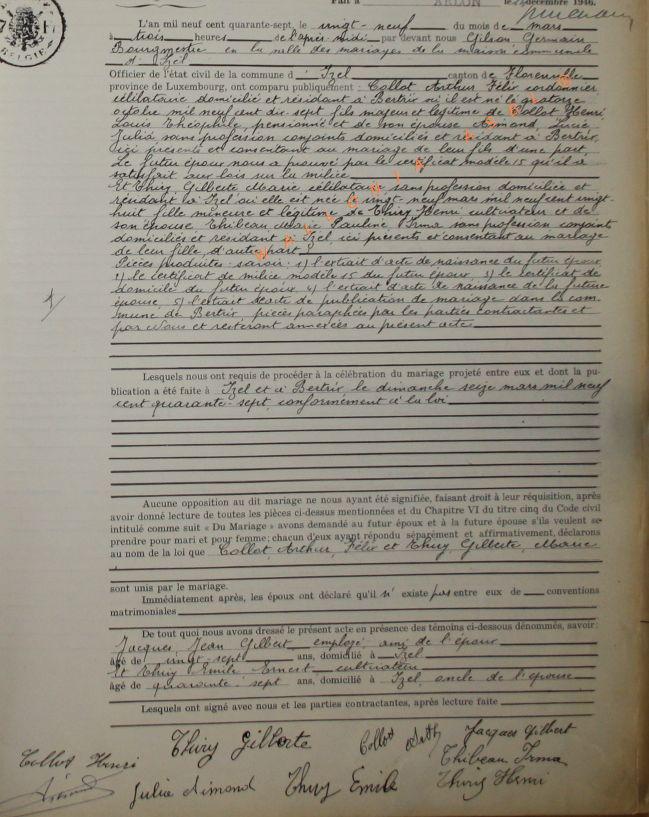 Fait à ARLON le décembre 1946.
BELGIË
L'an mil neuf cent quarante-sept, le vingt-neuf du mois de mars
à trois heures de l'après-midi par devant nous Gilson Germain
Bourgmestre en la salle des mariages de la maison communale
d'Izel
Officier de l'état civil de la commune d'Izel canton de Florenville
province de Luxembourg, ont comparu publiquement: Collot Arthur Félix cordonnier
célibataire domicilié et résidant à Bertrix où il est né le quatorze
octobre mil neuf cent dix-sept fils majeur et légitime de Collot Henri,
Louis Théophile, pensionné et de son épouse Aimond, Lucie
Julia sans profession conjoints domiciliés et résidant à Bertrix,
ici présents et consentant au mariage de leur fils d'une part.
Le futur époux nous a prouvé par le certificat modèle 15 qu'il a
satisfait aux lois sur la milice
Et Thiry, Gilberte Marie célibataire sans profession domiciliée et
résidant à Izel où elle est née le vingt-neuf mars mil neuf cent vingt-
huit fille mineure et légitime de Thiry Henri cultivateur et de
son épouse Thibeau Marie Pauline Irma sans profession conjoints
domiciliés et résidant à Izel, ici présents et consentant au mariage
de leur fille, d'autre part
Pièces produites savoir: 1) l'extrait d'acte de naissance du futur époux
2) le certificat de milice modèle 15 du futur époux, 3) le certificat de
domicile du futur époux, 4) l'extrait d'acte de naissance de la future
épouse, 5) l'extrait d'acte de publication de mariage dans la com-
mune de Bertrix, pièces paraphées par les parties contractantes et
par Nous et resteront annexées au présent acte
Lesquels nous ont requis de procéder à la célébration du mariage projeté entre eux et dont la pu-
blication a été faite à Izel et à Bertrix le dimanche seize mars mil neuf
cent quarante-sept, conformément à la loi
Aucune opposition au dit mariage ne nous ayant été signifiée, faisant droit à leur réquisition, après
avoir donné lecture de toutes les pièces ci-dessus mentionnées et du Chapitre VI du titre cinq du Code civil
intitulé comme suit « Du Mariage » avons demandé au futur époux et à la future épouse s'ils veulent se
prendre pour mari et pour femme; chacun d'eux ayant répondu séparément et affirmativement, déclarons
au nom de la loi que Collot, Arthur, Félix et Thiry, Gilberte, Marie
sont unis par le mariage.
Immédiatement après, les époux ont déclaré qu'il n'existe pas entre eux de conventions
matrimoniales
De tout quoi nous avons dressé le présent acte en présence des témoins ci-dessous dénommés, savoir:
Jacques, Jean Gilbert employé ami de l'époux
âgé de vingt sept ans, domicilié à Izel
Et Thiry Emile Ernest cultivateur
âgé de quarante-sept ans, domicilié à Izel, oncle de l'épouse
Lesquels ont signé avec nous et les parties contractantes, après lecture faite
Thiry Gilberte Collot Arth Jacques Gilbert
Collot Henri Thibeau Irma
Julia Aimond Thiry Emile Thiry Henri